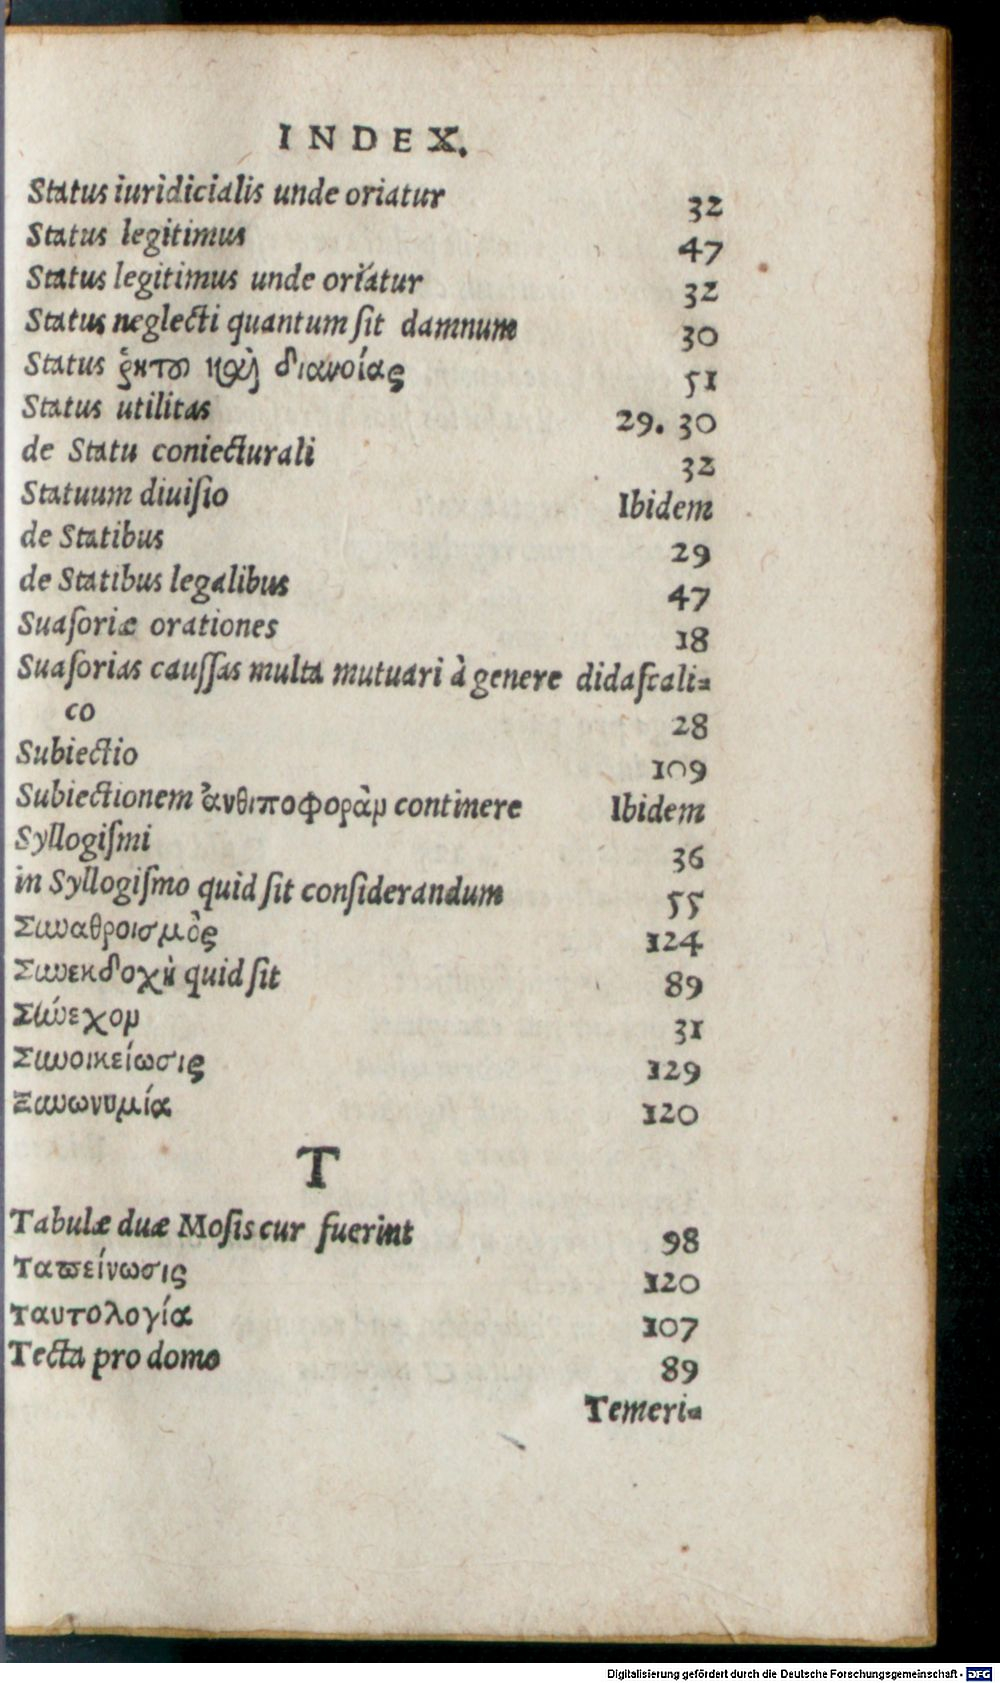 INDEX.
Status iuridicialis unde oriatur 32
Status legitimus 47
Status legitimus unde oriatur 32
Status neglecti quantum ſit damnum 30
Status ῥητοῦ καὶ διανοίας 51
Status utilitas 29. 30
de Statu coniecturali 32
Statuum diuiſio Ibidem
de Statibus 29
de Statibus legalibus 47
Suaſoriæ orationes 18
Suaſorias cauſſas multa mutuari à genere didaſcali=
co 28
Subiectio 109
Subiectionem ἀνθιποφορὰν continere Ibidem
Syllogiſmi 36
in Syllogiſmo quid ſit conſiderandum 55
Συναθροισμὸς 124
Συνεκδοχὴ quid ſit 89
Σύνεχον 31
Συνοικείωσις 129
Ξυνωνυμία 120
T
Tabulæ duæ Moſis cur fuerint 98
Ταπείνωσις 120
Ταυτολογία 107
Tecta pro domo 89
Temeri=
Digitalisierung gefördert durch die Deutsche Forschungsgemeinschaft - DFG